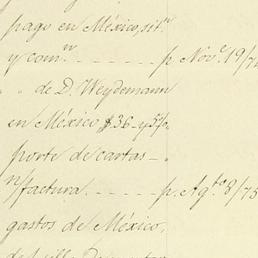 pago en México, sit.n
y com.n - - - - - - p. Nov.e 19/7
" " de D. Weydemann
en México $36- y
porte de cartas -
n/factura - - - - - p. Ag.to 8/75
gastos de México,